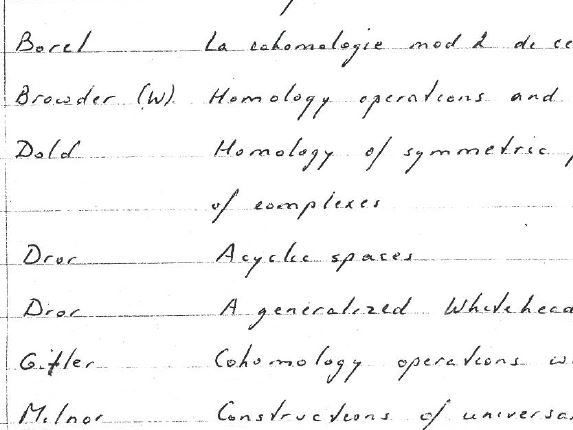 Borel La cohomologie mod 2 de ce
Browder (W) Homology operations and
Dold Homology of symmetric
of complexes
Dror Acyclic spaces
Dror A generalized Whitehea
Gitler Cohomology operations w
Milnor Constructions of universa